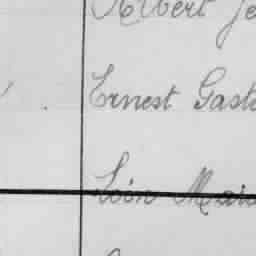 Albert Je
Ernest Gast
Loïn Mar